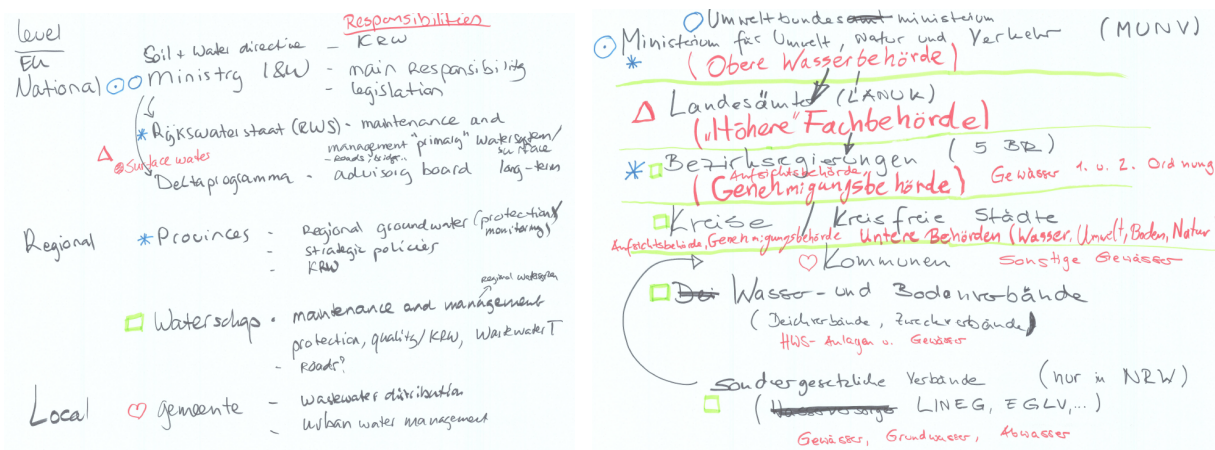 level
Responsibilities
EU
Soil + Water directive - KRW
National Ministry I&W - main Responsibility
- legislation
Rijkswaterstaat (RWS) - maintenance and
management "primary" Watersystem/
- Roads? bridge.. surface
Surface water
Deltaprogramma - advisory board long-term
Regional Provinces - Regional groundwater (protection/
monitoring)
- strategic policies
- KRW
Regional watersystem
Waterschap - maintenance and management
protection, quality/KRW, Wastewater T
- Roads?
Local gemeente - wastewater distribution
- urban water management
Umweltbundesamt ministerium
Ministerium für Umwelt, Natur und Verkehr (MUNV)
(Obere Wasserbehörde)
Landesämter (LANUK)
("Höhere" Fachbehörde)
Bezirksregierungen (5 BR)
Aufsichtsbehörde, Gewässer 1. u. 2. Ordnung
(Genehmigungsbehörde)
Kreise / Kreisfreie Städte
Aufsichtsbehörde, Genehmigungsbehörde Untere Behörden (Wasser, Umwelt, Boden, Natur
Kommunen Sonstige Gewässer
Dei Wasser- und Bodenverbände
(Deichverbände, Zweckverbände)
HWS-Anlagen u. Gewässer
sondergesetzliche Verbände (nur in NRW)
(LINEG, EGLV,...)
Gewässer, Grundwasser, Abwasser